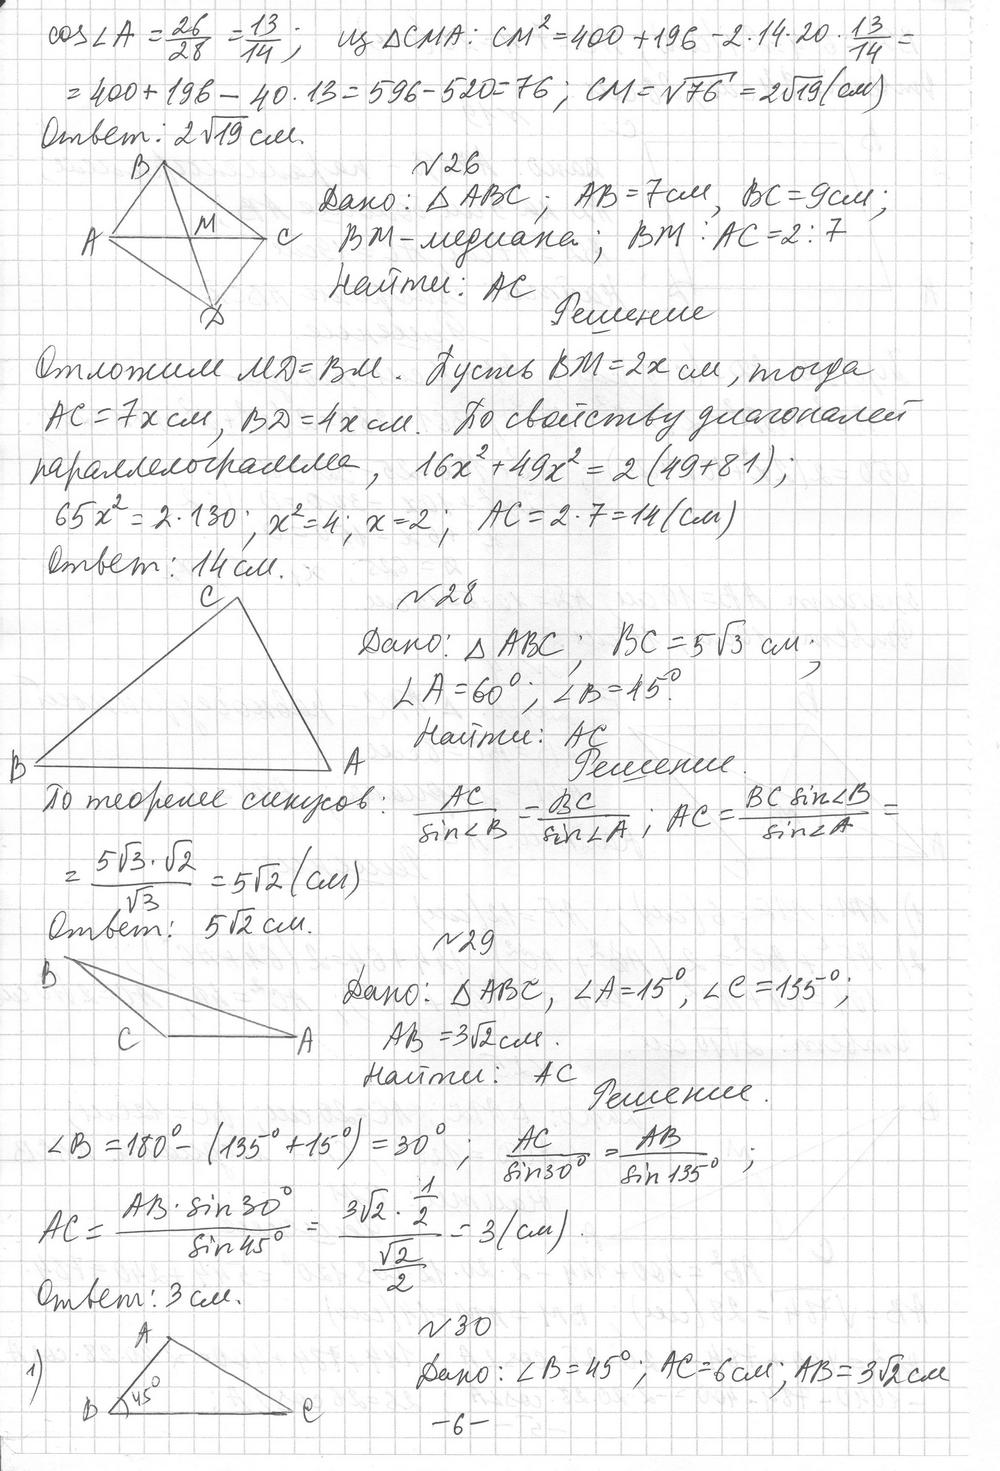 cos∠A = 26/28 = 13/14; из △CMA: CM² = 400 + 196 − 2·14·20·13/14 =
= 400 + 196 − 40·13 = 596 − 520 = 76; CM = √76 = 2√19 (см)
Ответ: 2√19 см.
№26
B
A
M
C
D
Дано: △ABC; AB = 7 см, BC = 9 см;
BM – медиана; BM : AC = 2 : 7
Найти: AC
Решение
Отложим MD = BM. Пусть BM = 2x см, тогда
AC = 7x см, BD = 4x см. По свойству диагоналей
параллелограмма, 16x² + 49x² = 2(49 + 81);
65x² = 2·130; x² = 4; x = 2; AC = 2·7 = 14 (см)
Ответ: 14 см.
№28
C
B
A
Дано: △ABC; BC = 5√3 см;
∠A = 60°; ∠B = 45°.
Найти: AC
Решение.
По теореме синусов: AC/sin∠B = BC/sin∠A; AC = BC sin∠B/sin∠A =
= 5√3·√2/√3 = 5√2 (см)
Ответ: 5√2 см.
№29
B
C
A
Дано: △ABC, ∠A = 15°, ∠C = 135°;
AB = 3√2 см.
Найти: AC
Решение.
∠B = 180° − (135° + 15°) = 30°; AC/sin30° = AB/sin135°;
AC = AB·sin30°/sin45° = 3√2·1/2/√2/2 = 3 (см).
Ответ: 3 см.
№30
1)
A
B
45°
C
Дано: ∠B = 45°; AC = 6 см; AB = 3√2 см
-6-